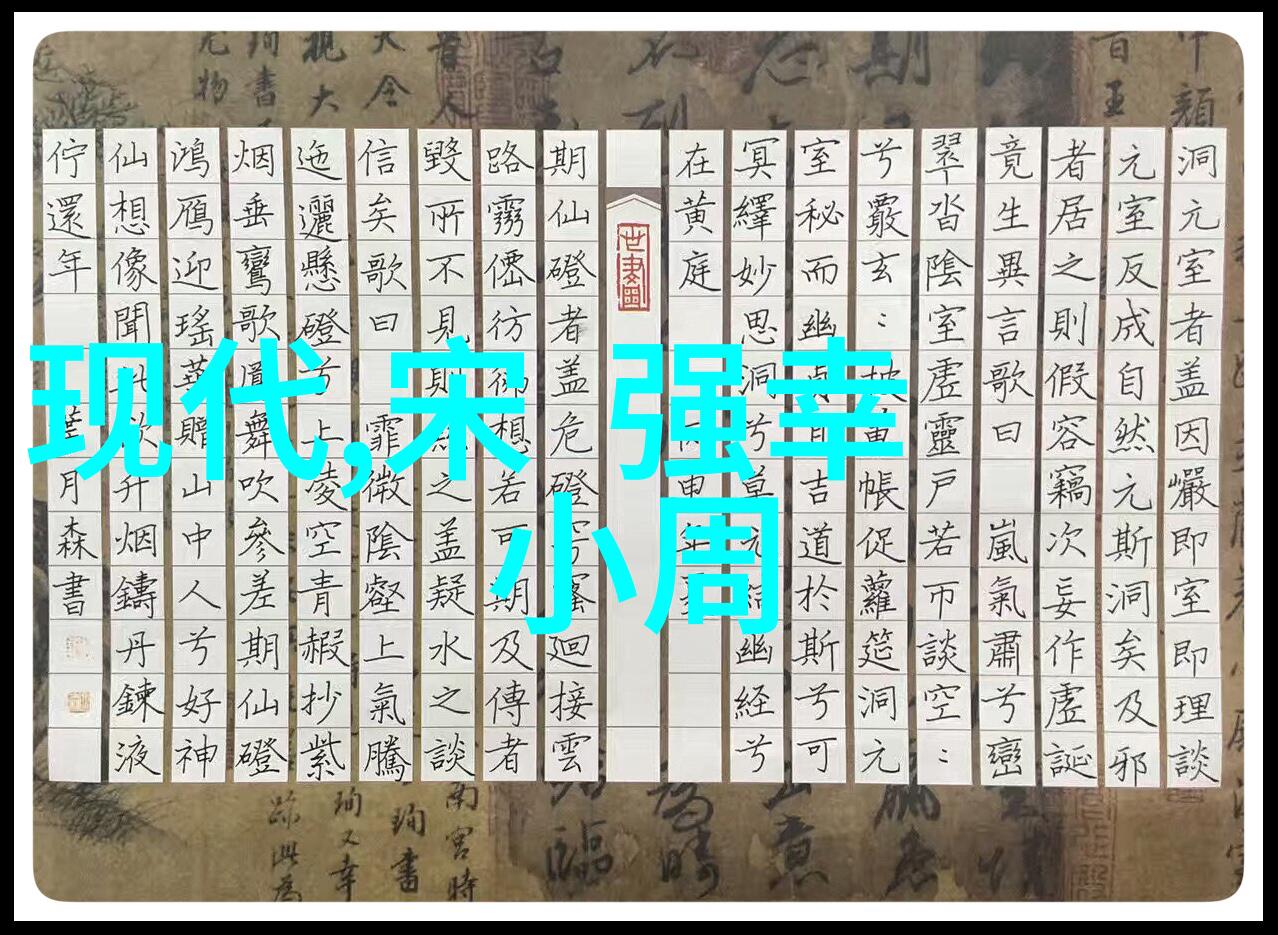 洞元室者盖因巖即室即理談
元室反成自然元斯洞矣及邪
者居之則假容竊次妄作虛誕
竟生異言歌曰 嵐氣肅兮巒
翠沓陰室虛靈戶若市談空〻
兮覈玄〻披蕙帳促蘿筵洞元
室秘而幽貞且吉道於斯兮可
冥繹妙思洞兮草元綜幽經兮
在黃庭
期仙磴者盖危磴穹窿迴接雲
路霧僊彷彿想若可期及傳者
毀所不見則黜之盖疑水之談
信矣歌曰 霏微陰壑上氣騰
迤邐懸磴兮上凌空青赮抄紫
烟垂鸞歌鳳舞吹參差期仙磴
鴻鴈迎瑤華贈山中人兮好神
仙想像聞升烟鑄丹鍊液
佇還年 葉月森書
现代,宋 强幸
小周